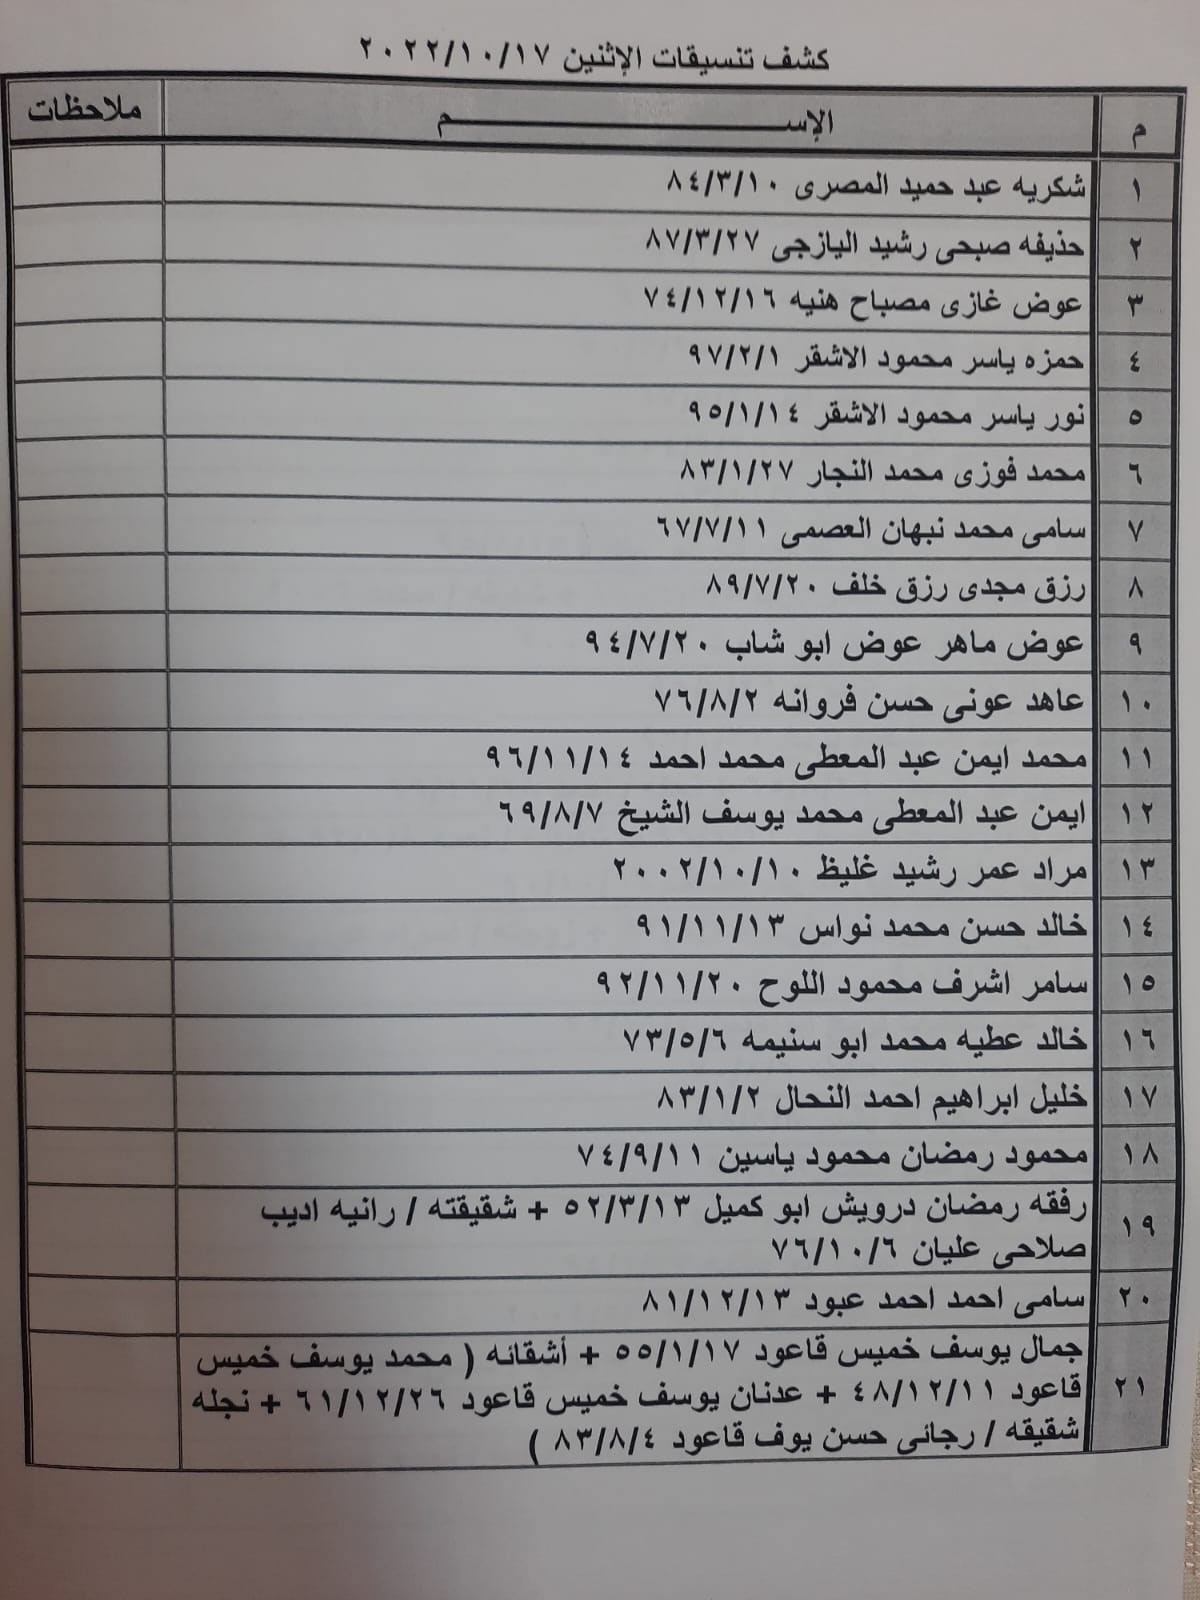 كشف تنسيقات الإثنين ٢٠٢٢/١٠/١٧
م الإســـــــــــــم ملاحظات
١ شكريه عبد حميد المصرى ٨٤/٣/١٠
٢ حذيفه صبحى رشيد اليازجى ٨٧/٣/٢٧
٣ عوض غازى مصباح هنيه ٧٤/١٢/١٦
٤ حمزه ياسر محمود الاشقر ٩٧/٢/١
٥ نور ياسر محمود الاشقر ٩٥/١/١٤
٦ محمد فوزى محمد النجار ٨٣/١/٢٧
٧ سامى محمد نبهان العصمى ٦٧/٧/١١
٨ رزق مجدى رزق خلف ٨٩/٧/٢٠
٩ عوض ماهر عوض ابو شاب ٩٤/٧/٢٠
١٠ عاهد عونى حسن فروانه ٧٦/٨/٢
١١ محمد ايمن عبد المعطى محمد احمد ٩٦/١١/١٤
١٢ ايمن عبد المعطى محمد يوسف الشيخ ٦٩/٨/٧
١٣ مراد عمر رشيد غليظ ٢٠٠٢/١٠/١٠
١٤ خالد حسن محمد نواس ٩١/١١/١٣
١٥ سامر اشرف محمود اللوح ٩٢/١١/٢٠
١٦ خالد عطيه محمد ابو سنيمه ٧٣/٥/٦
١٧ خليل ابراهيم احمد النحال ٨٣/١/٢
١٨ محمود رمضان محمود ياسين ٧٤/٩/١١
١٩ رفقه رمضان درويش ابو كميل ٥٢/٣/١٣ + شقيقته / رانيه اديب
صلاحى عليان ٧٦/١٠/٦
٢٠ سامى احمد احمد عبود ٨١/١٢/١٣
٢١ جمال يوسف خميس قاعود ٥٥/١/١٧ + أشقائه ( محمد يوسف خميس
قاعود ٤٨/١٢/١١ + عدنان يوسف خميس قاعود ٦١/١٢/٢٦ + نجله
شقيقه / رجائى حسن يوف قاعود ٨٣/٨/٤ )